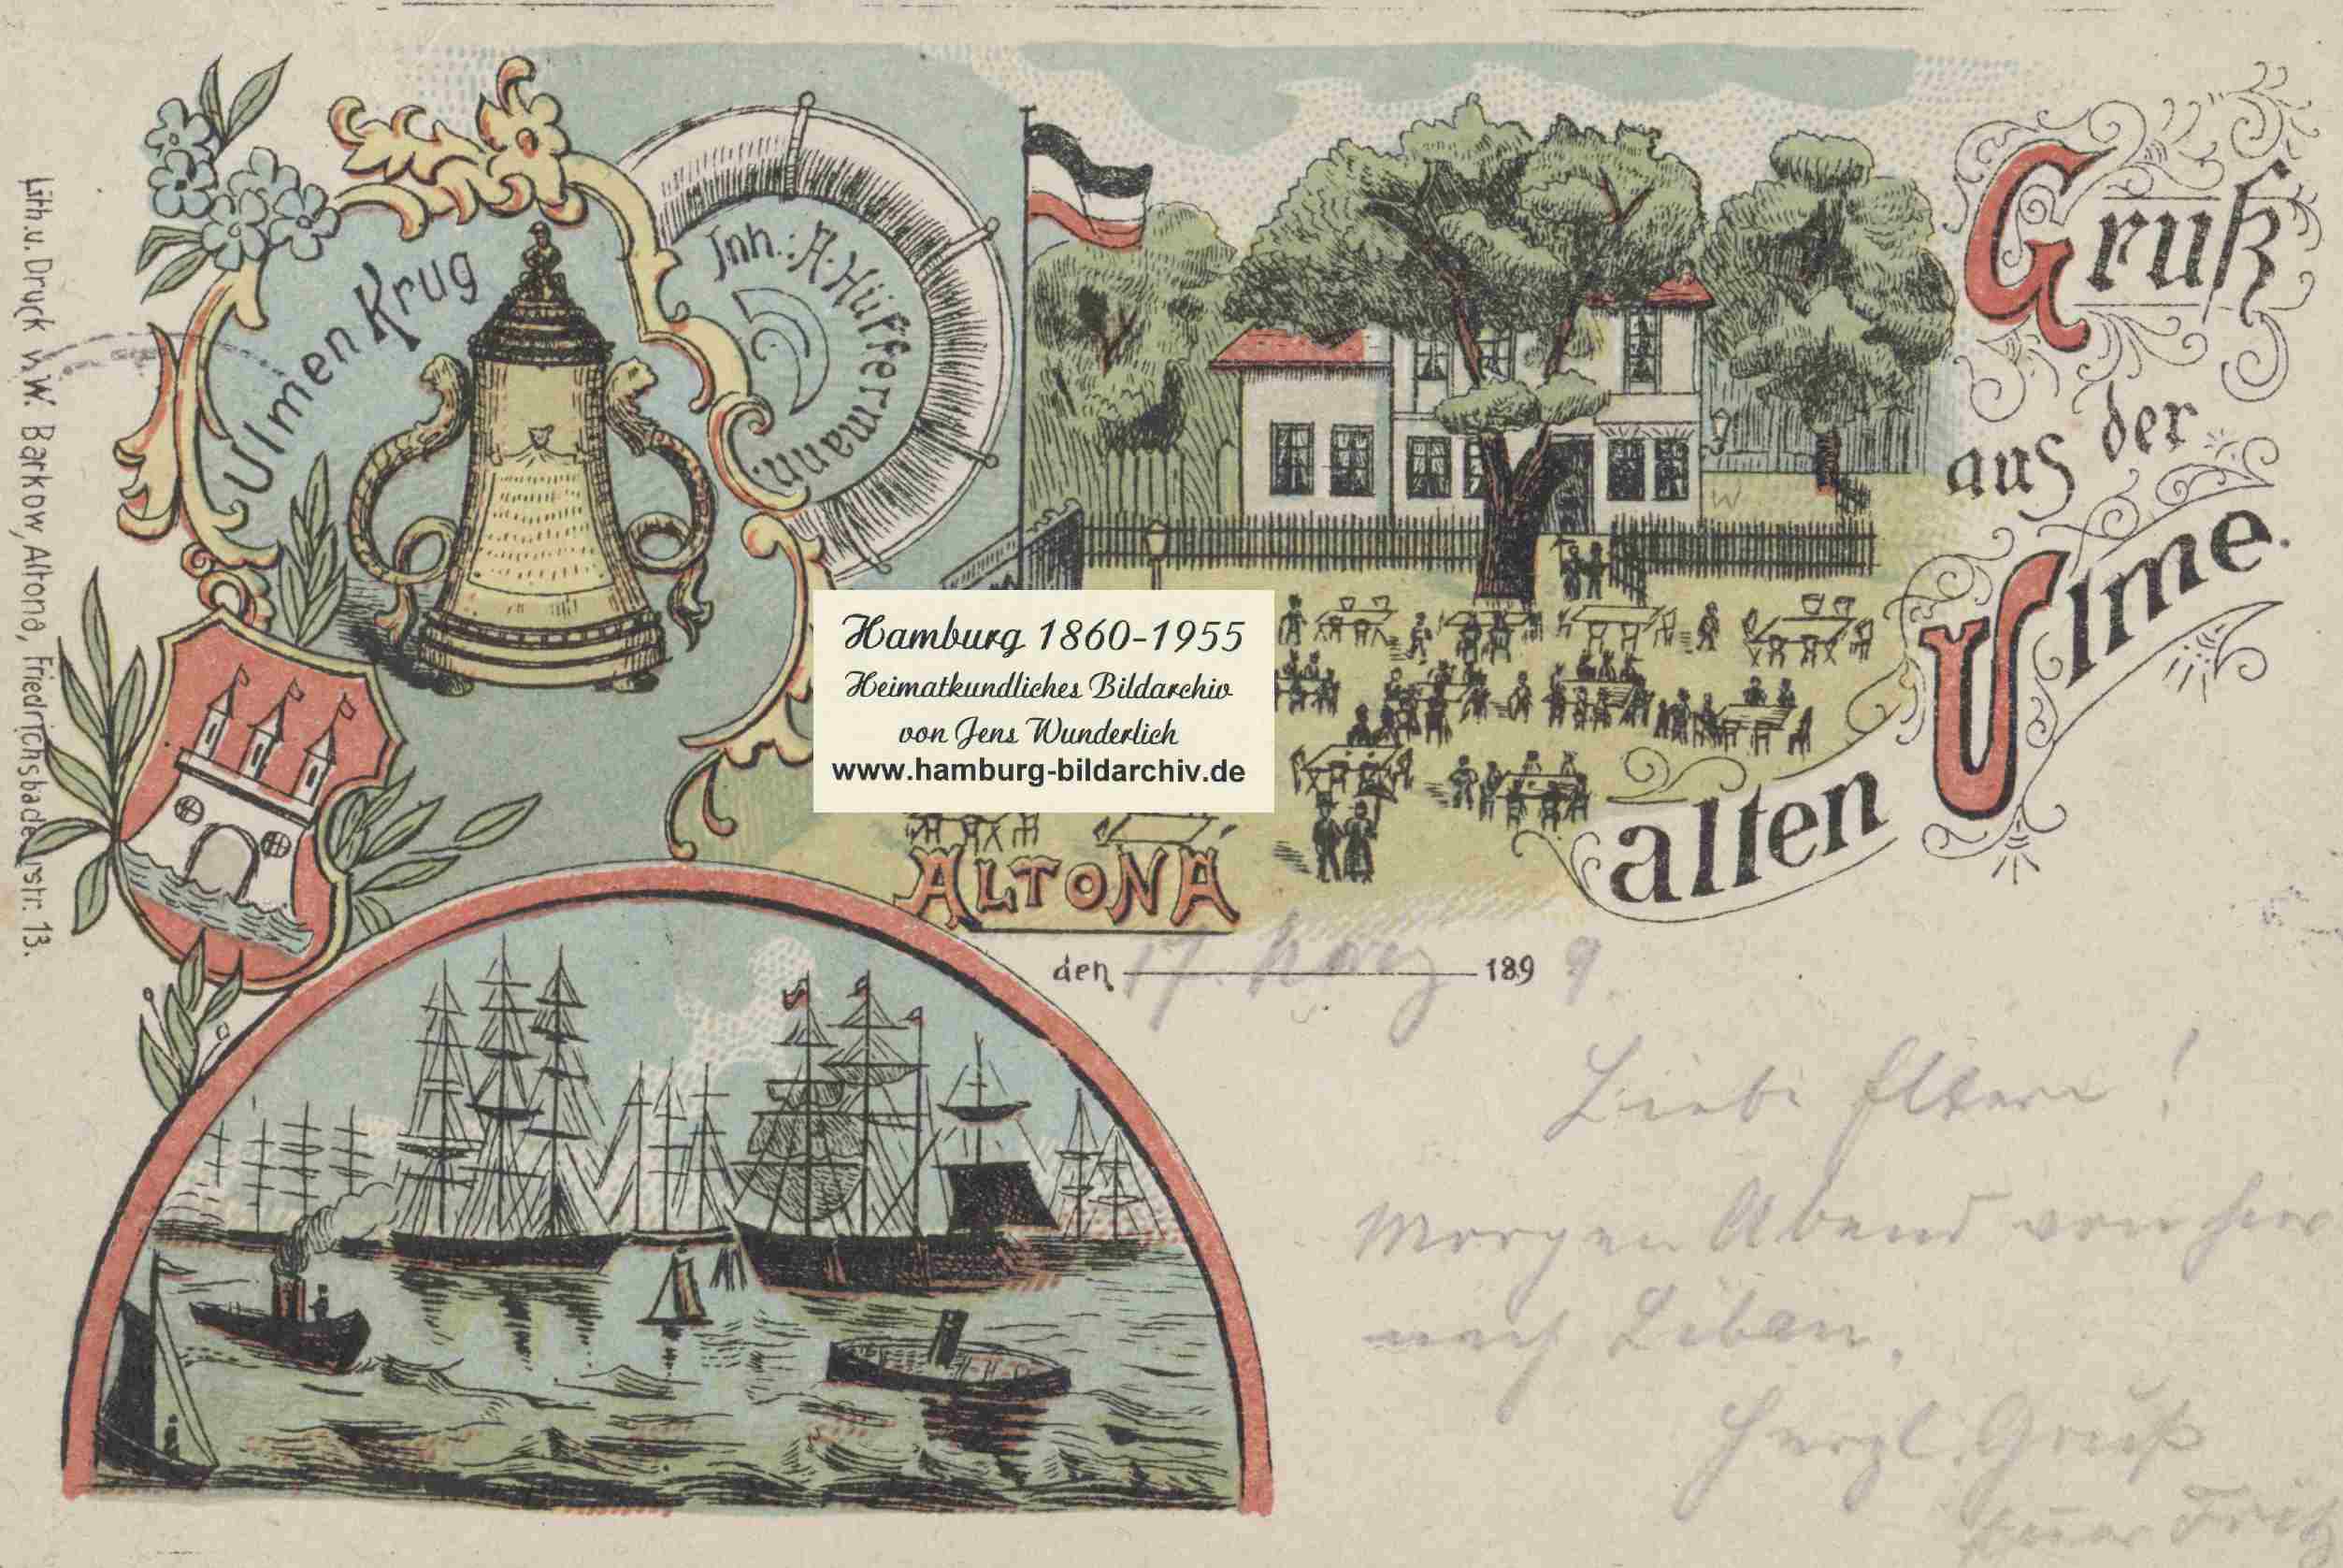 Lith. u. Druck v. W. Barkow, Altona, Friedrichsbaderstr. 13.
Ulmen Krug
Inh.: A. Hüffermann.
Gruß
aus der
alten Ulme.
Hamburg 1860-1955
Heimatkundliches Bildarchiv
von Jens Wunderlich
www.hamburg-bildarchiv.de
ALTONA
W
den 17. März 1899.
Liebe Eltern!
Morgen Abend von hier
nach Liban.
Herzl. Gruß
Euer Fritz